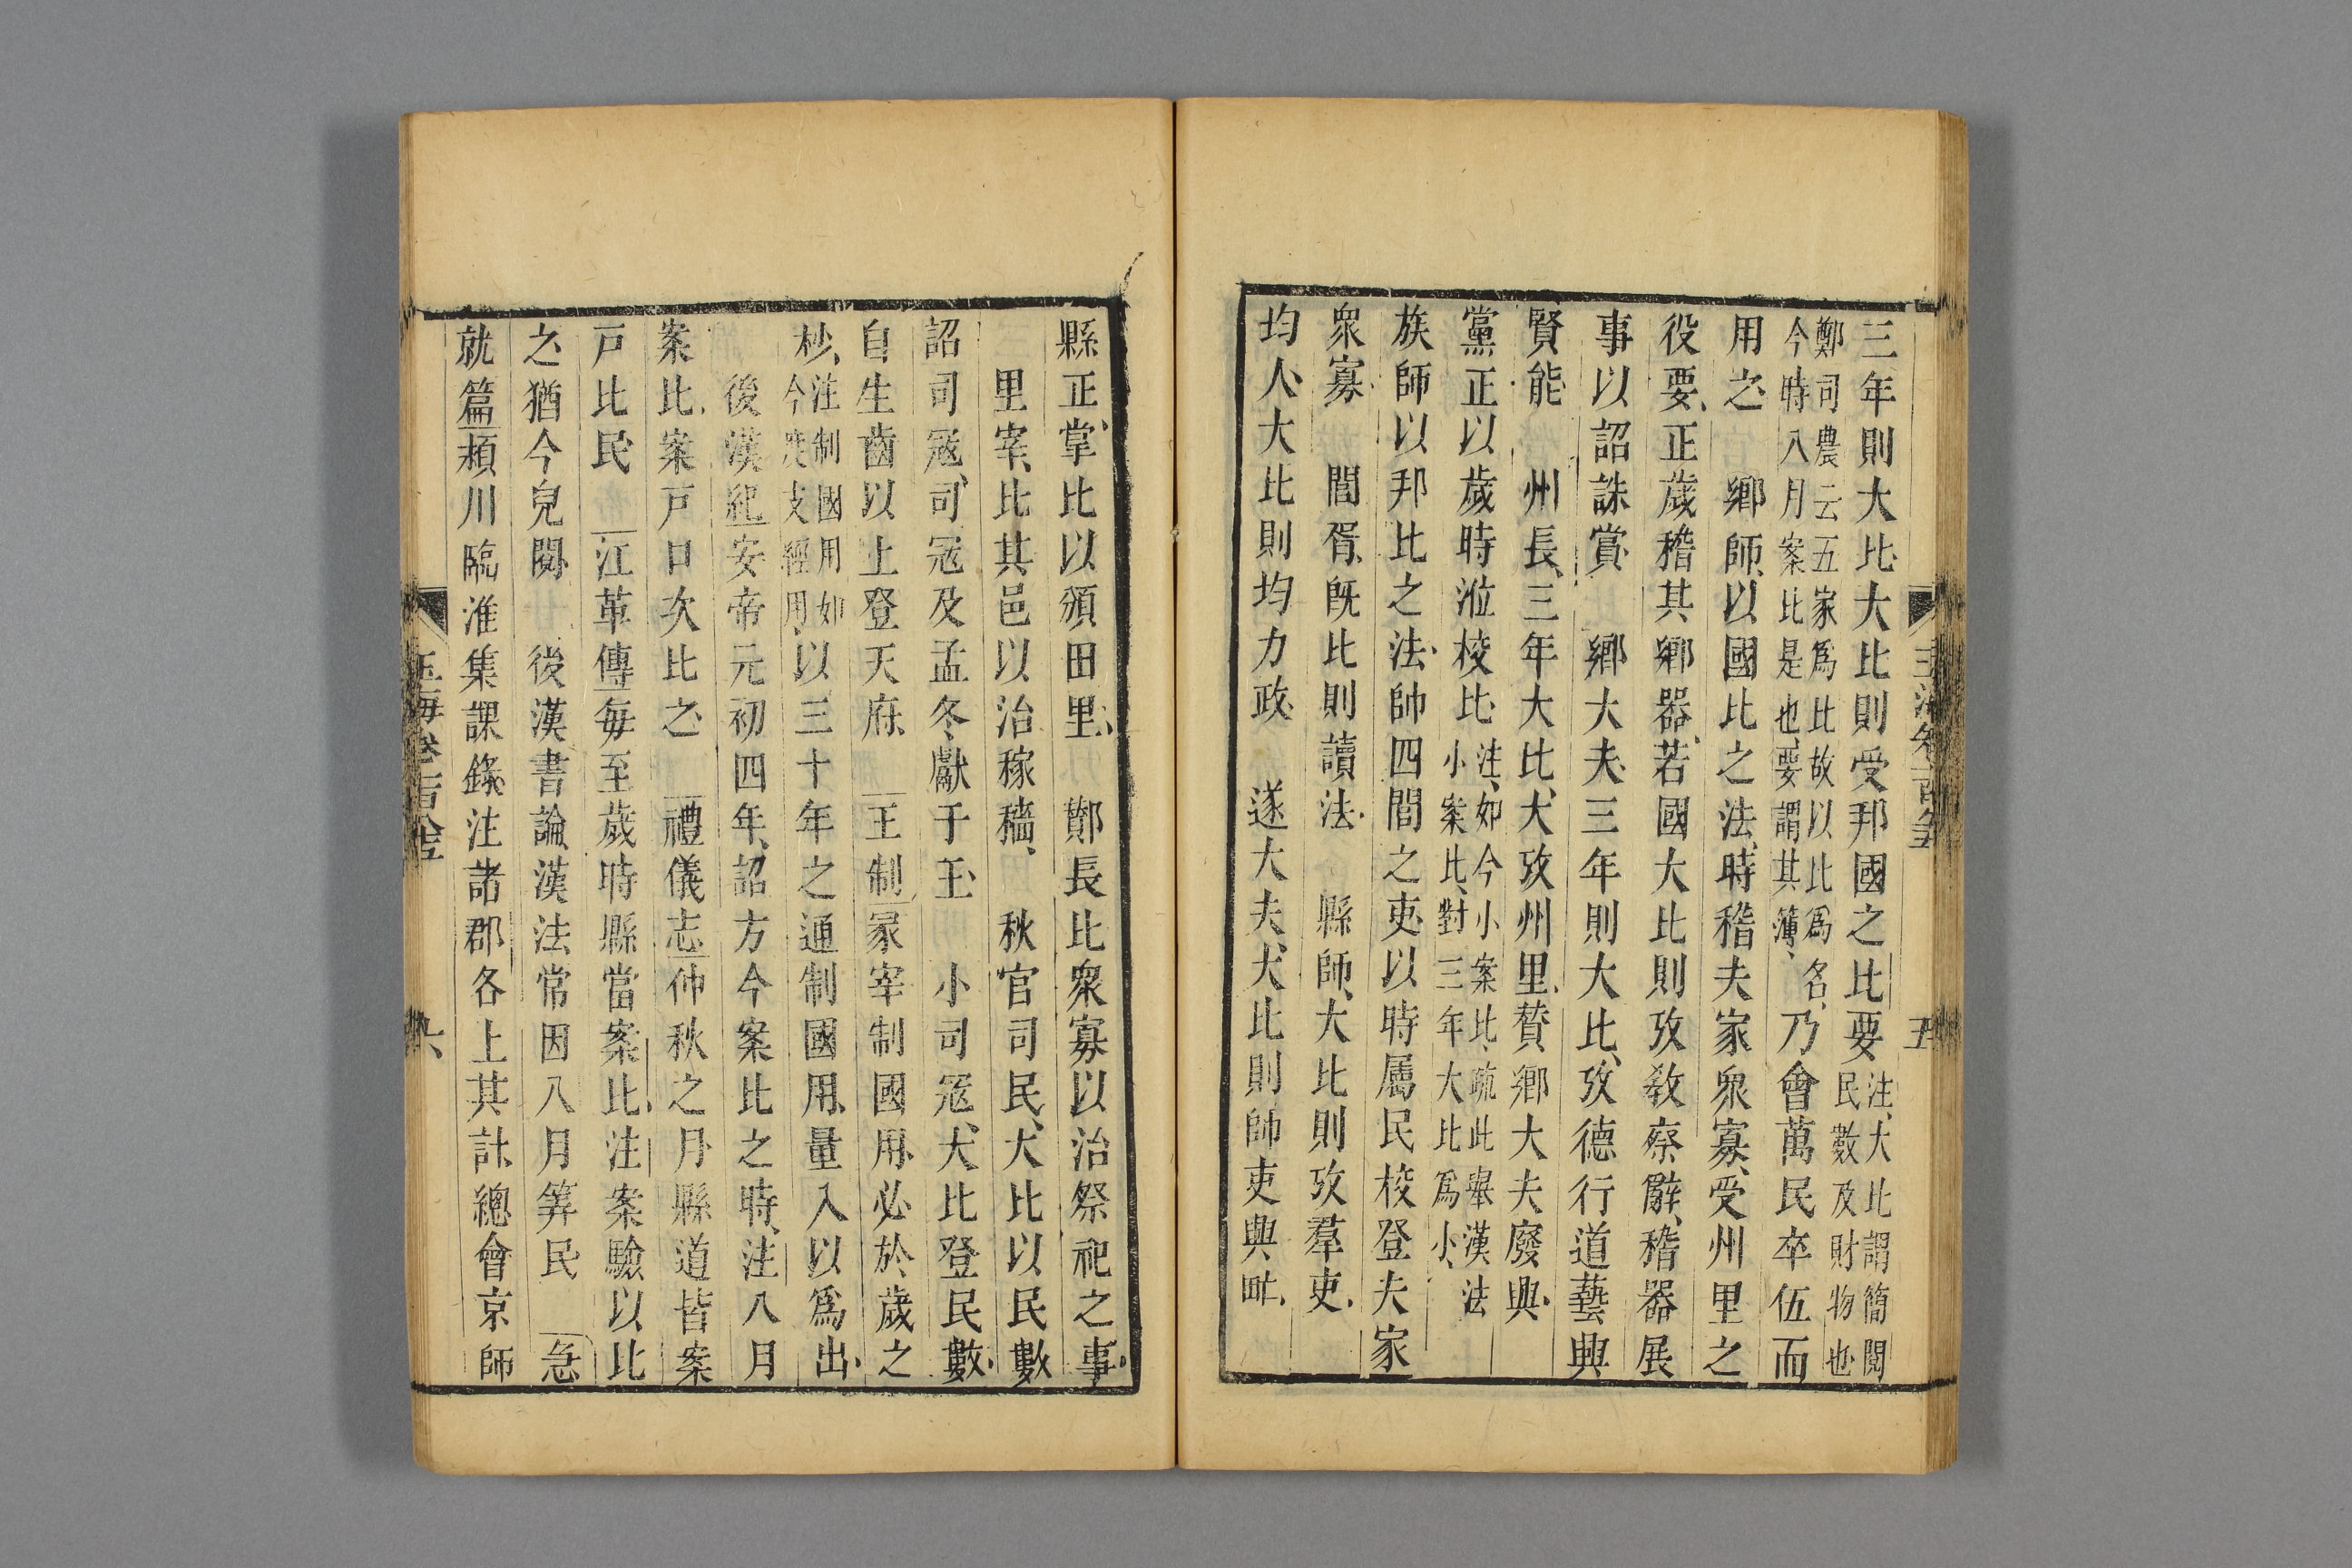 三年則大比大比則受邦國之比要注大比謂簡閱民數及財物也
鄭司農云五家爲比故以比爲名今時八月案比是也要謂其簿乃會萬民卒伍而
用之　鄉師以國比之法時稽夫家衆寡受州里之
役要正歲稽其鄉器若國大比則攷敎察辭稽器展
事以詔誅賞　鄉大夫三年則大比攷德行道藝興
賢能　州長三年大比大攷州里贊鄉大夫廢興
黨正以歲時涖校比注如今小案比疏此舉漢法小案比對三年大比爲小
族師以邦比之法帥四閭之吏以時屬民校登夫家
衆寡　閭胥旣比則讀法　縣師大比則攷羣吏
均人大比則均力政　遂大夫大比則帥吏興甿
五
縣正掌比以頒田里　酇長比衆寡以治祭祀之事
里宰比其邑以治稼穡　秋官司民大比以民數
詔司寇司寇及孟冬獻于王　小司寇大比登民數
自生齒以上登天府　王制冢宰制國用必於歲之
杪注制國用如今度支經用以三十年之通制國用量入以爲出
後漢紀安帝元初四年詔方今案比之時注八月
案比案戸口次比之　禮儀志仲秋之月縣道皆案
戸比民　江革傳每至歲時縣當案比注案驗以比
之猶今皃閱　後漢書論漢法常因八月筭民　急
就篇潁川臨淮集課錄注諸郡各上其計總會京師
玉海卷
六